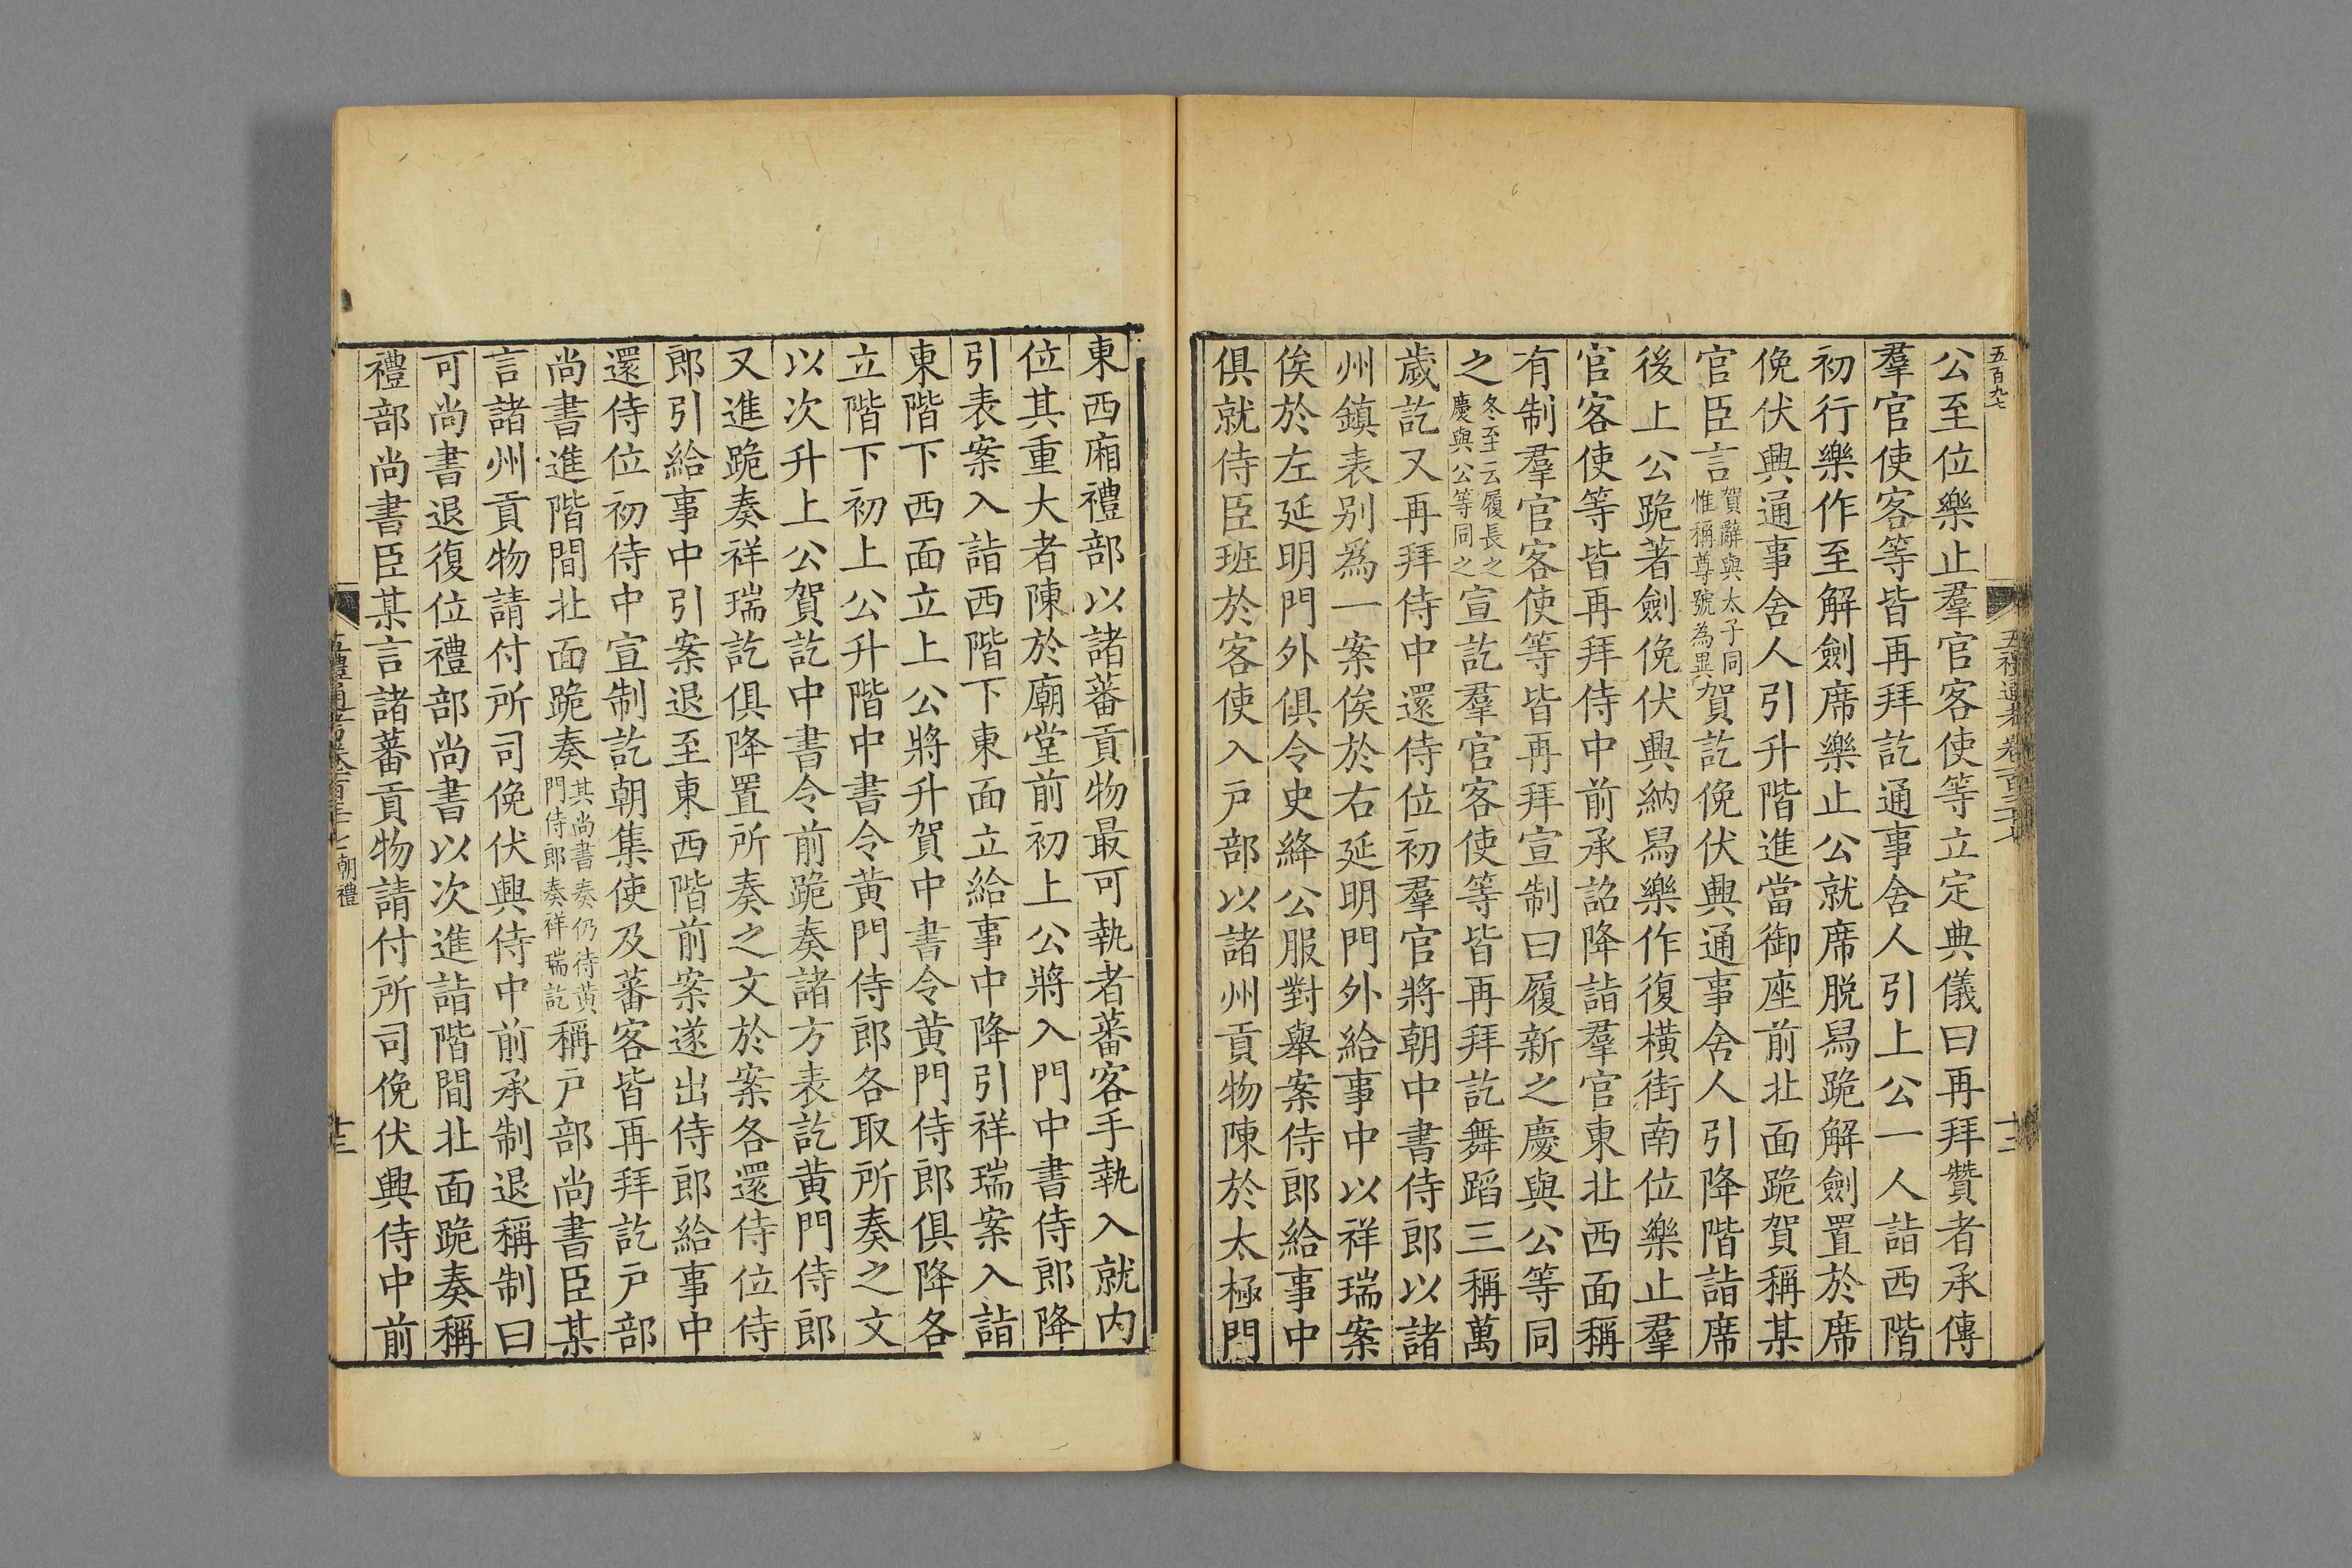 五百九七
五禮通考卷一百三十七
十二
公至位樂止羣官客使等立定典儀曰再拜贊者承傳
羣官使客等皆再拜訖通事舍人引上公一人詣西階
初行樂作至解劍席樂止公就席脱舄跪解劍置於席
俛伏興通事舍人引升階進當御座前北面跪賀稱某
官臣言賀辭與太子同惟稱尊號為異賀訖俛伏興通事舍人引降階詣席
後上公跪著劍俛伏興納舄樂作復橫街南位樂止羣
官客使等皆再拜侍中前承詔降詣羣官東北西面稱
有制羣官客使等皆再拜宣制曰履新之慶與公等同
之冬至云履長之慶與公等同之宣訖羣官客使等皆再拜訖舞蹈三稱萬
歲訖又再拜侍中還侍位初羣官將朝中書侍郎以諸
州鎮表别爲一案俟於右延明門外給事中以祥瑞案
俟於左延明門外俱令史絳公服對舉案侍郎給事中
俱就侍臣班於客使入戸部以諸州貢物陳於太極門
東西廂禮部以諸蕃貢物最可執者蕃客手執入就内
位其重大者陳於廟堂前初上公將入門中書侍郎降
引表案入詣西階下東面立給事中降引祥瑞案入詣
東階下西面立上公將升賀中書令黄門侍郎俱降各
立階下初上公升階中書令黄門侍郎各取所奏之文
以次升上公賀訖中書令前跪奏諸方表訖黄門侍郎
又進跪奏祥瑞訖俱降置所奏之文於案各還侍位侍
郎引給事中引案退至東西階前案遂出侍郎給事中
還侍位初侍中宣制訖朝集使及蕃客皆再拜訖戸部
尚書進階間北面跪奏其尚書奏仍待黄門侍郎奏祥瑞訖稱戸部尚書臣某
言諸州貢物請付所司俛伏興侍中前承制退稱制曰
可尚書退復位禮部尚書以次進詣階間北面跪奏稱
禮部尚書臣某言諸蕃貢物請付所司俛伏興侍中前
五禮通考卷一百三十七 朝禮
十三